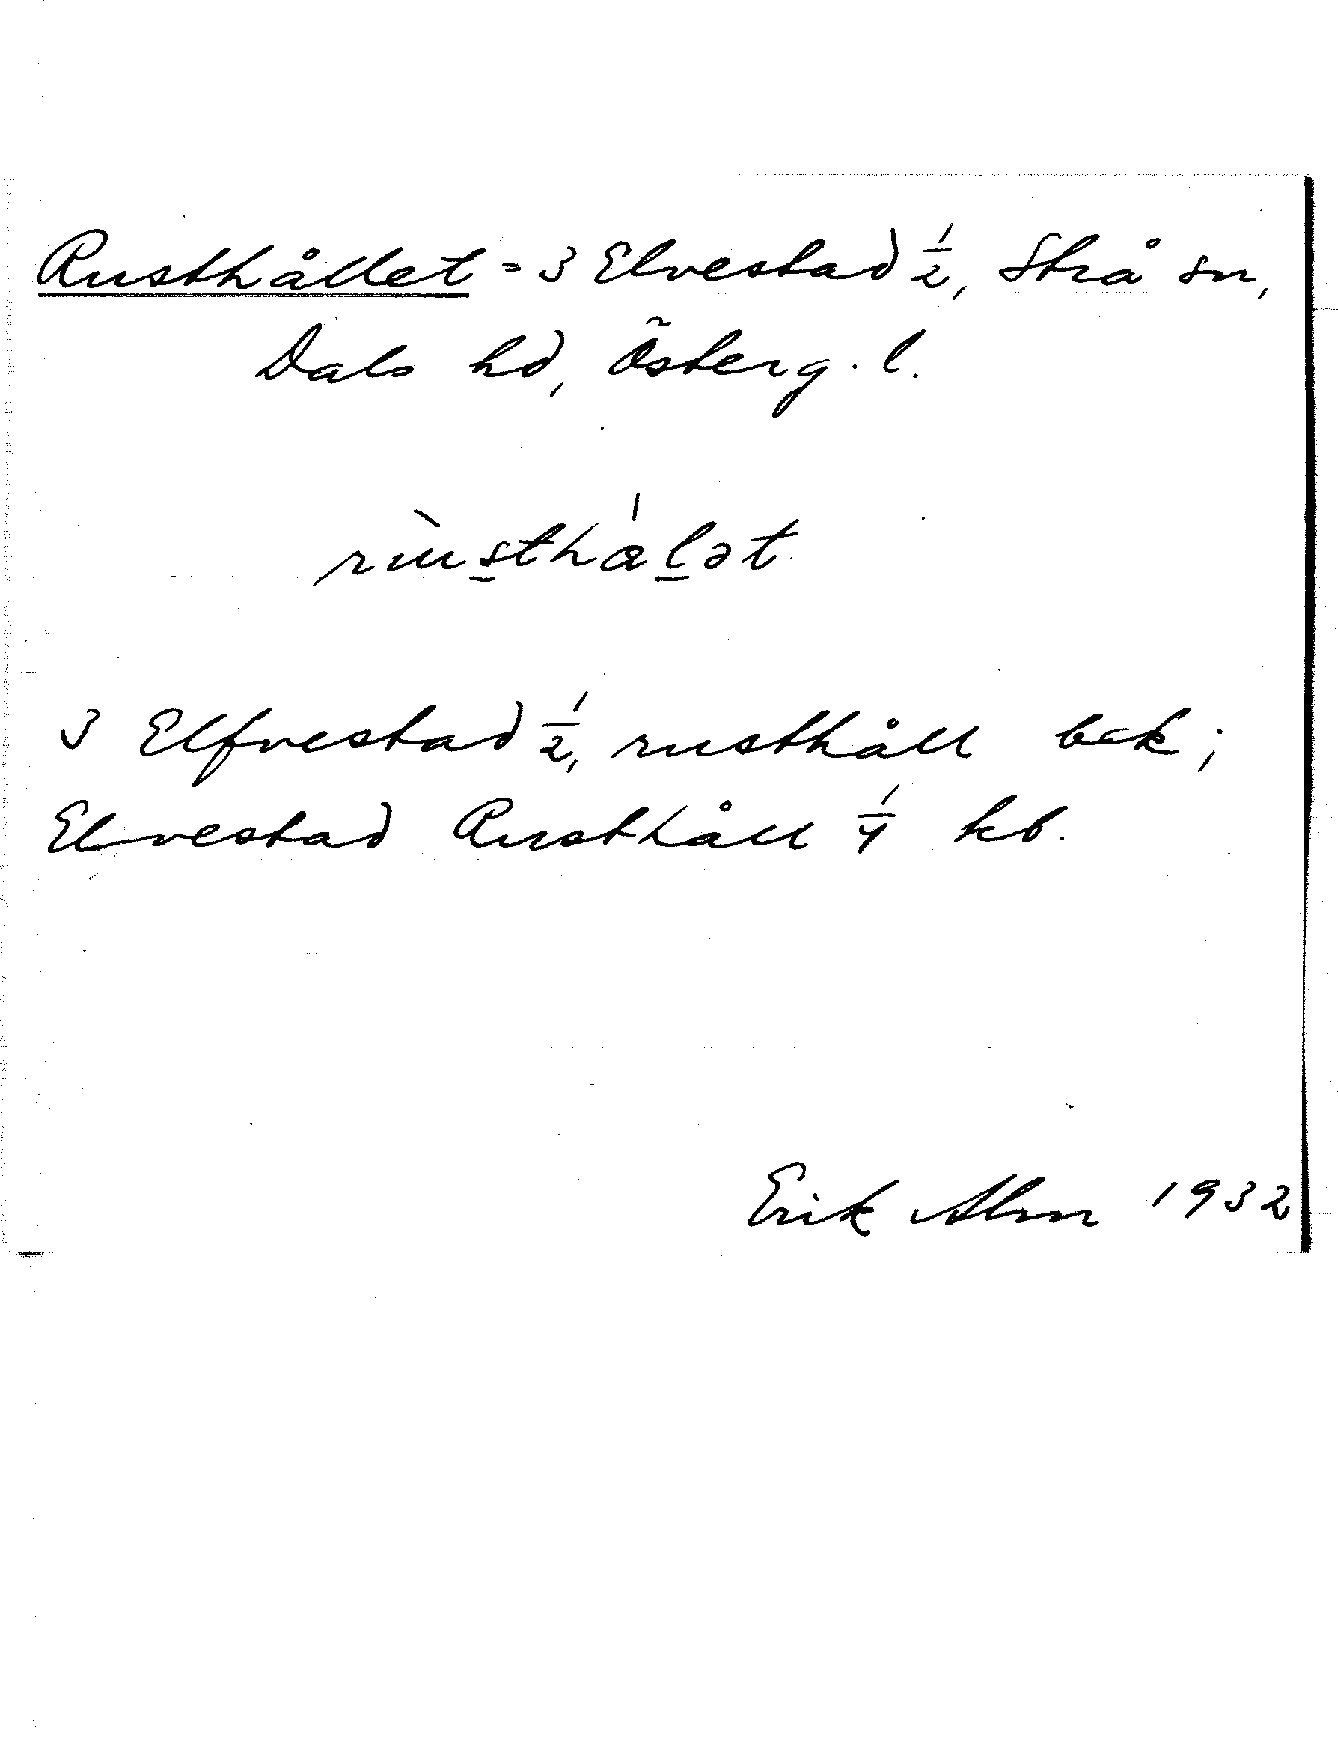 Rusthållet = 3 Elvestad 1/2, Strå sn,
Dals hd, Österg. l.
rùsthálət
3 Elfvestad 1/2, rusthåll bek;
Elvestad Rusthåll 1/4 kb.
Erik Alm 1932